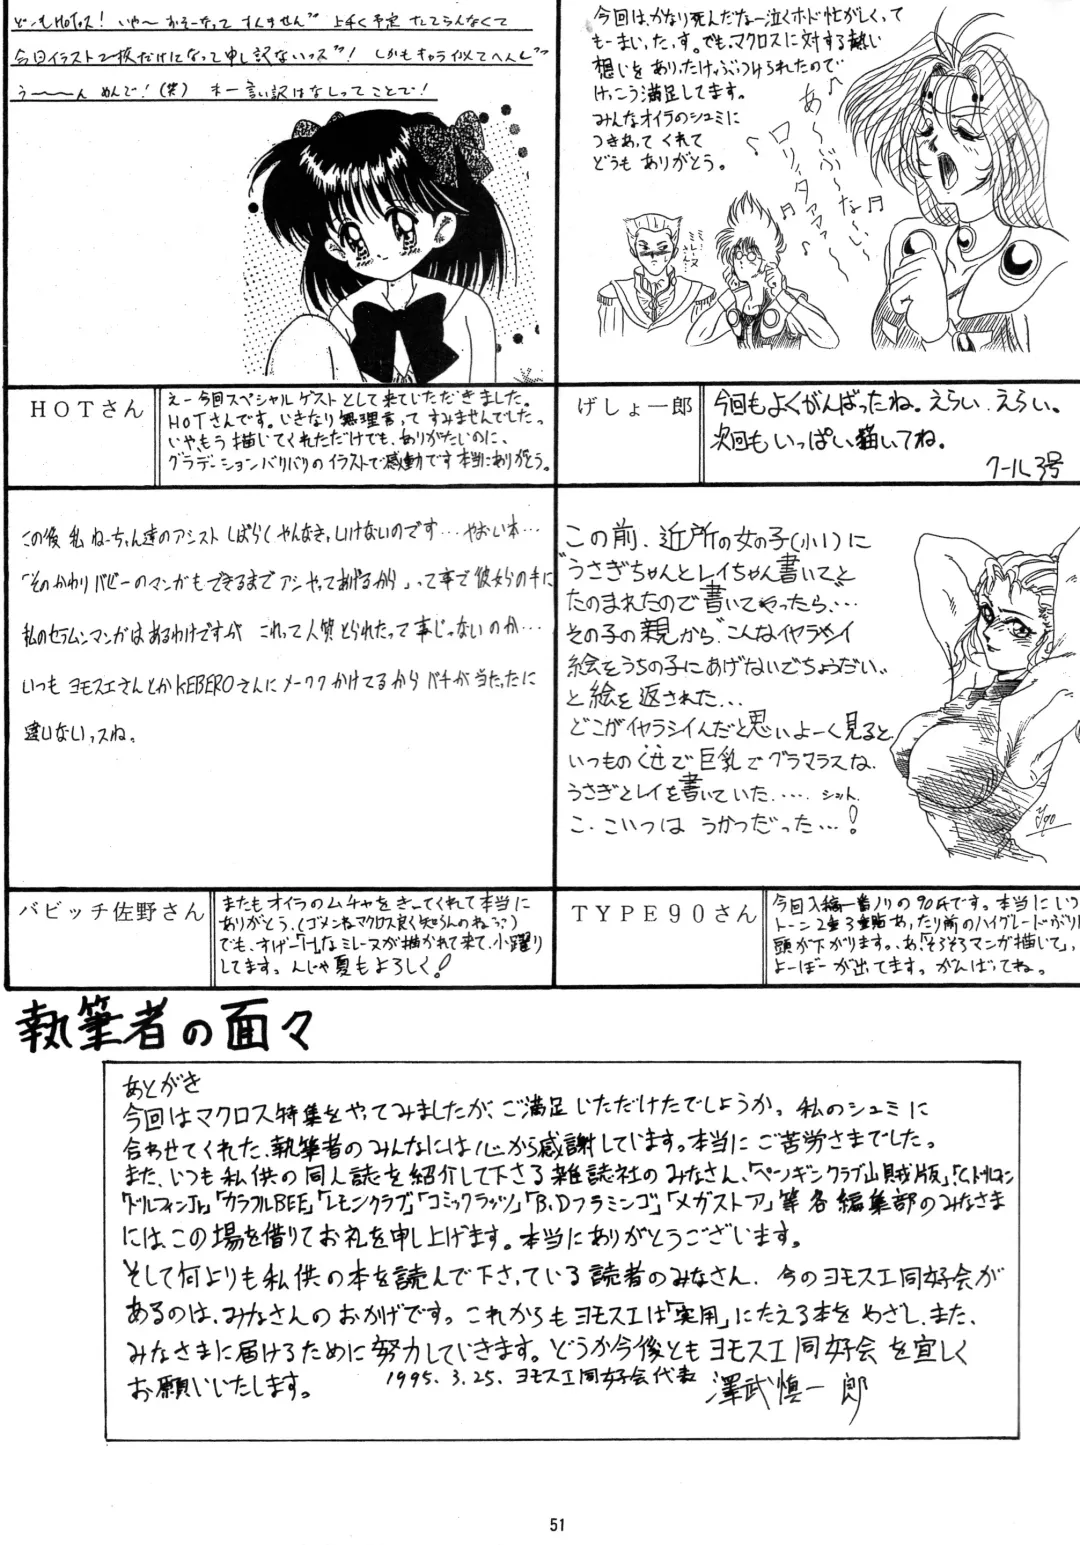 どーもHOTッス！いや～おそーなってすんませんﾞ上手く予定たてらんなくて
今回イラスト2枚だけになって申し訳ないっスﾞ！しかもキャラ似てへんしﾞ
う～～～ん めんで！(笑) ま 言い訳はなしってことで！
今回は、かなり死んだなー泣くホド忙がしくって
もーまいった、す。でも、マクロスに対する熱い
想いを ありったけ、ぶっつけられたので
けっこう満足してます。
みんなオイラのシュミに
つきあって くれて
どうも ありがとう。
あ～ぶ～な～い～
ロリィタァァァ～
HOTさん
えー今回スペシャルゲストとして来ていただきました。
HOTさんです。いきなり無理言ってすみませんでしたっ
いやもう描いてくれただけでも、ありがたいのに、
グラデーションバリバリのイラストで感動です本当にありがとう。
げしょ一郎
今回もよくがんばったね。えらい、えらい。
次回も いっぱい描いてね。
クール3号
この後 私 ねーちゃん達のアシスト しばらく やんなきゃいけないのです…やおい本…
「そのかわりバビーのマンガもできるまで アシやってあげるから」って事で彼女らの手に
私のセラムンマンガはあるわけですが これって人質とられたって事じゃないのか…
いつも ヨモスエさんとかKEBEROさんにメーワクかけてるから バチが当たったに
違いないっスね。
この前、近所の女の子(小1)に
"うさぎちゃんとレイちゃん書いて"と
たのまれたので書いてやったら…
その子の親から"こんなイヤラシイ
絵をうちの子にあげないでちょうだい"
と絵を返された…
どこがイヤラシイんだと思いよーく見ると、
いつものくせで巨乳でグラマラスな、
うさぎとレイを書いていた…‥ シット、
こ、こいつは うかつだった…！
バビッチ佐野さん
またもオイラのムチャをきってくれて本当に
ありがとう、(ゴメンねマクロス良く知らんのねぅ)
でも、すげー「H」なミレーヌが描かれて来て、小躍り
してます。んじゃ夏もよろしく！
TYPE90さん
今回入稿一番ノリの90氏です。本当にいつ
トーン2重3重貼あ、たり前のハイグレードがりに
頭が下がります。あ「そろそろマンガ描いて」、
よーぼーが出てます。がんばってね。
執筆者の面々
あとがき
今回はマクロス特集をやってみましたが、ご満足いただけたでしょうか。私のシュミに
合わせてくれた、執筆者のみんなには心から感謝しています。本当にご苦労さまでした。
また、いつも私供の同人誌を紹介して下さる雑誌社のみなさん、「ペンギンクラブ山賊版」、
「ドルフィンJr」「カラフルBEE」「レモンクラブ」「コミックラッツ」「B、Dフラミンゴ」「メガストア」等各編集部のみなさま
には、この場を借りてお礼を申し上げます。本当にありがとうございます。
そして何よりも私供の本を読んで下さっている読者のみなさん、今のヨモスエ同好会が
あるのは、みなさんのおかげです。これからもヨモスエは「実用」にたえる本をめざし、また、
みなさまに届けるために努力していきます。どうか今後ともヨモスエ同好会を宜しく
お願いいたします。 1995.3.25. ヨモスエ同好会代表 澤武慎一郎
51